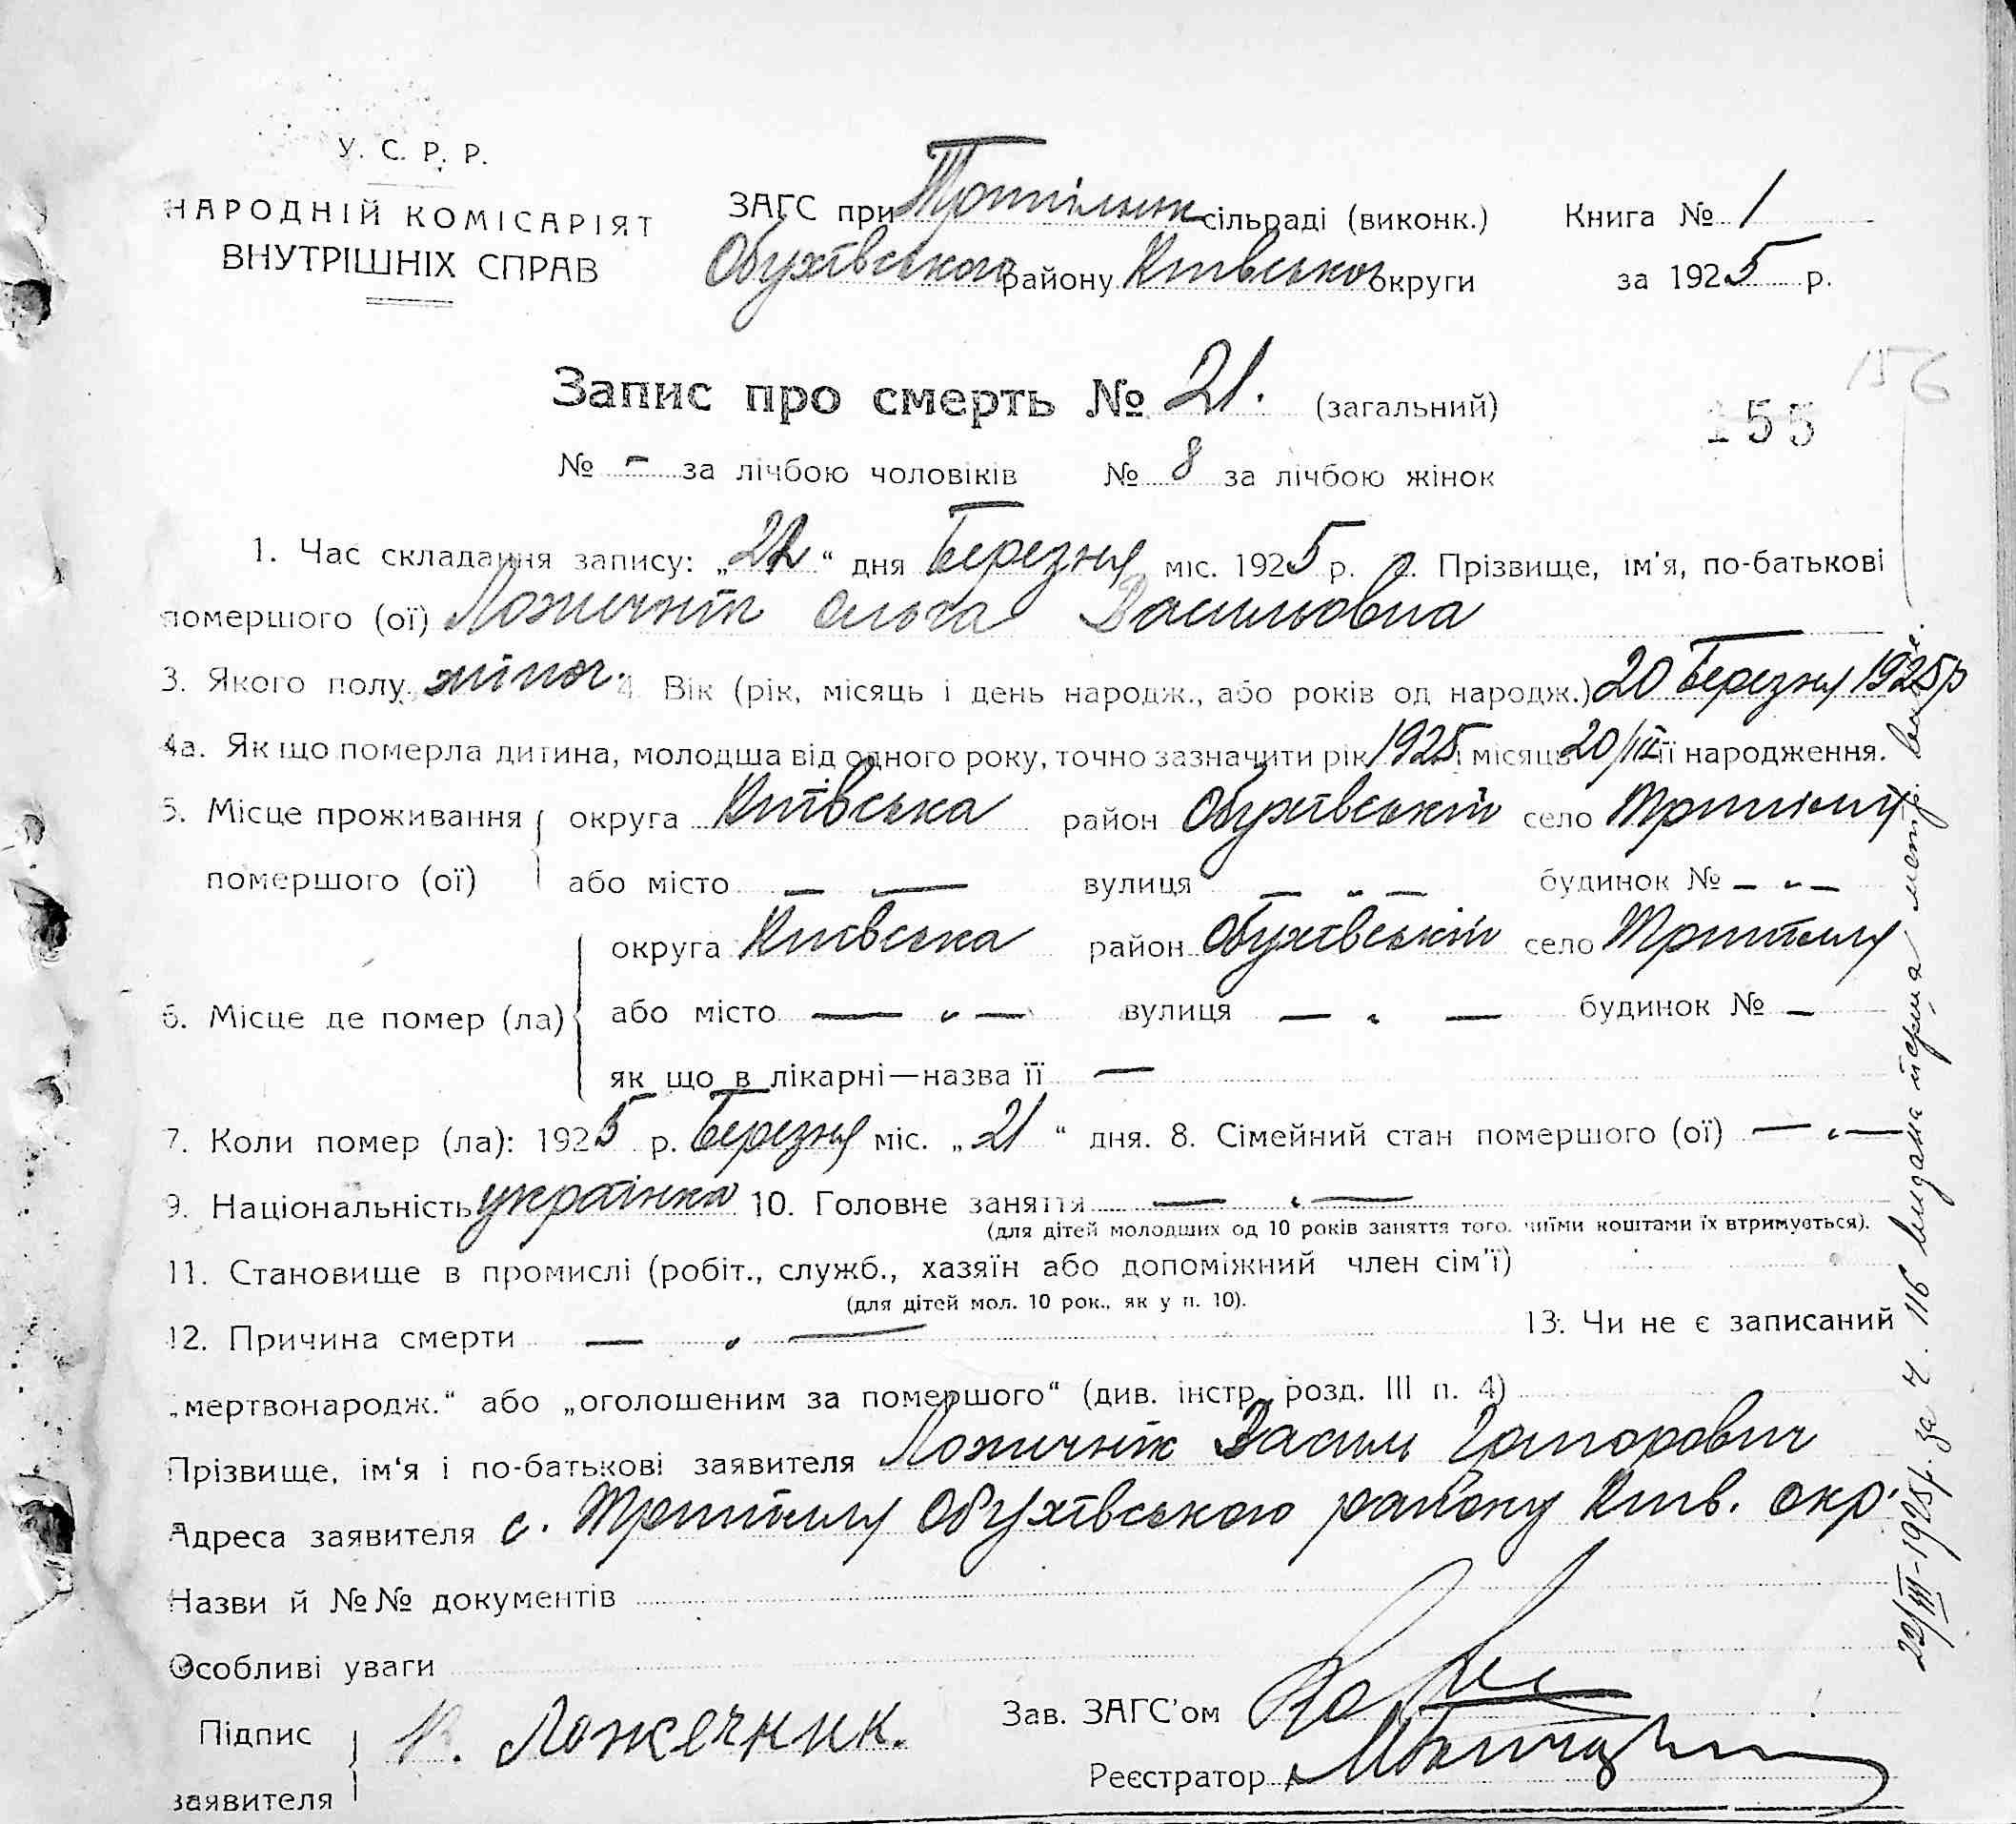 У. С. Р. Р.
НАРОДНІЙ КОМІСАРІЯТ
ВНУТРІШНІХ СПРАВ
ЗАГС при Трипільск сільраді (виконк.)
Обухівського району Київської округи
Книга № 1
за 1925 р.
156
Запис про смерть № 21. (загальний)
155
№ - за лічбою чоловіків № 8 за лічбою жінок
1. Час складання запису: „22“ дня Березня міс. 1925 р. 2. Прізвище, ім'я, по-батькові
помершого (ої) Ложичнік Ольга Васильовна
3. Якого полу жіноч. 4. Вік (рік, місяць і день народж., або років од народж.) 20 Березня 1925р
4а. Як що померла дитина, молодша від одного року, точно зазначити рік 1925 і місяць 20/ІІІ її народження.
5. Місце проживання округа Київська район Обухівській село Трипілля
помершого (ої) або місто — — вулиця — „ — будинок № — „ —
округа Київська район Обухівській село Трипілля
6. Місце де помер (ла) або місто — „ — вулиця — „ — будинок № —
як що в лікарні—назва її —
7. Коли помер (ла): 1925 р. Березня міс. „21“ дня. 8. Сімейний стан помершого (ої) — „ —
9. Національність українка 10. Головне заняття — „ —
(для дітей молодших од 10 років заняття того, чиїми коштами їх втримується).
11. Становище в промислі (робіт., служб., хазяїн або допоміжний член сім'ї)
(для дітей мол. 10 рок., як у п. 10).
12. Причина смерти — „ — 13. Чи не є записаний
„мертвонародж.“ або „оголошеним за помершого“ (див. інстр. розд. III п. 4)
Прізвище, ім'я і по-батькові заявителя Ложичнік Василь Григорович
Адреса заявителя с. Трипілля Обухівського району Київ. окр.
Назви й №№ документів
Особливі уваги
Підпис заявителя В. Ложечник.
Зав. ЗАГС'ом
Реєстратор
22/III-1925р. за ч. 116 видана перша метр. випис.